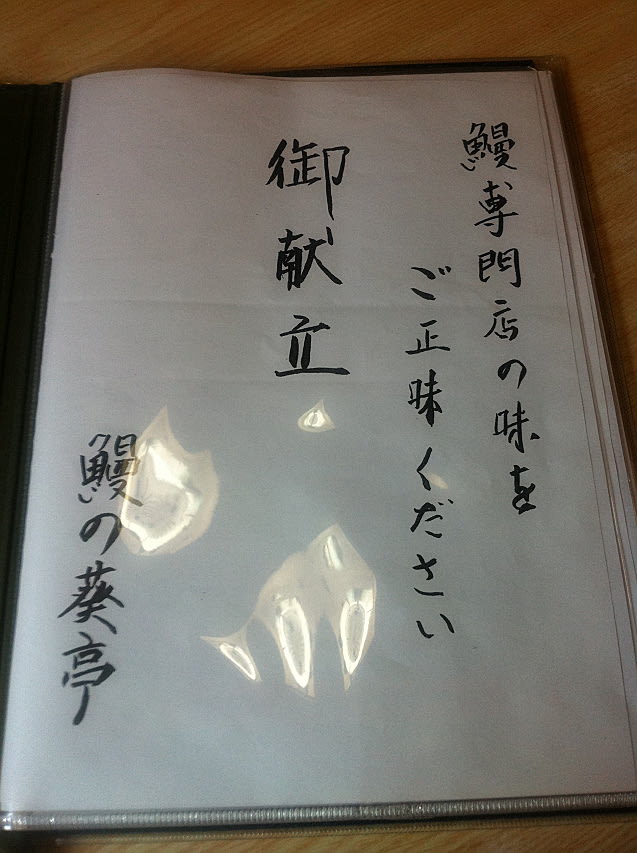 鰻専門店の味を
ご正味ください
御献立
鰻の葵亭